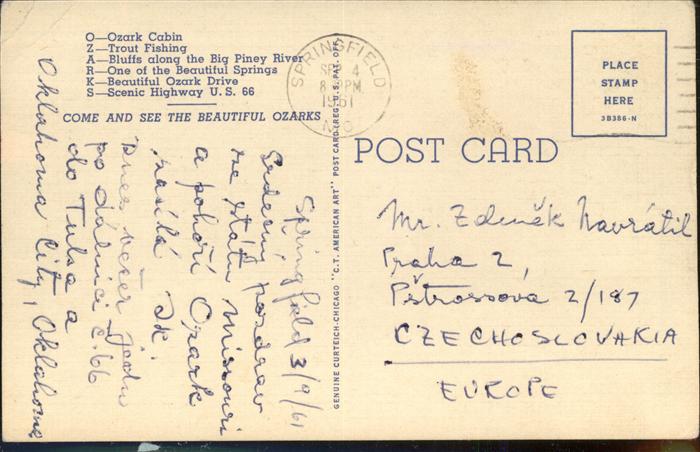 O—Ozark Cabin
Z—Trout Fishing
A—Bluffs along the Big Piney River
R—One of the Beautiful Springs
K—Beautiful Ozark Drive
S—Scenic Highway U.S. 66
COME AND SEE THE BEAUTIFUL OZARKS
SPRINGFIELD
4
PM
1961
MO.
PLACE
STAMP
HERE
3B386-N
POST CARD
GENUINE CURTEICH-CHICAGO "C.T. AMERICAN ART" POST CARD (REG. U.S. PAT. OFF.)
Springfield 3/9/61
Srdečný pozdrav
ze státu Missouri
a pohoří Ozark
zasílá
Dnes večer jedu
po dálnici č. 66
do Tulsa a
Oklahoma City, Oklahoma
Mr. Zdeněk Navrátil
Praha 2,
Pštrossova 2/187
CZECHOSLOVAKIA
EUROPE